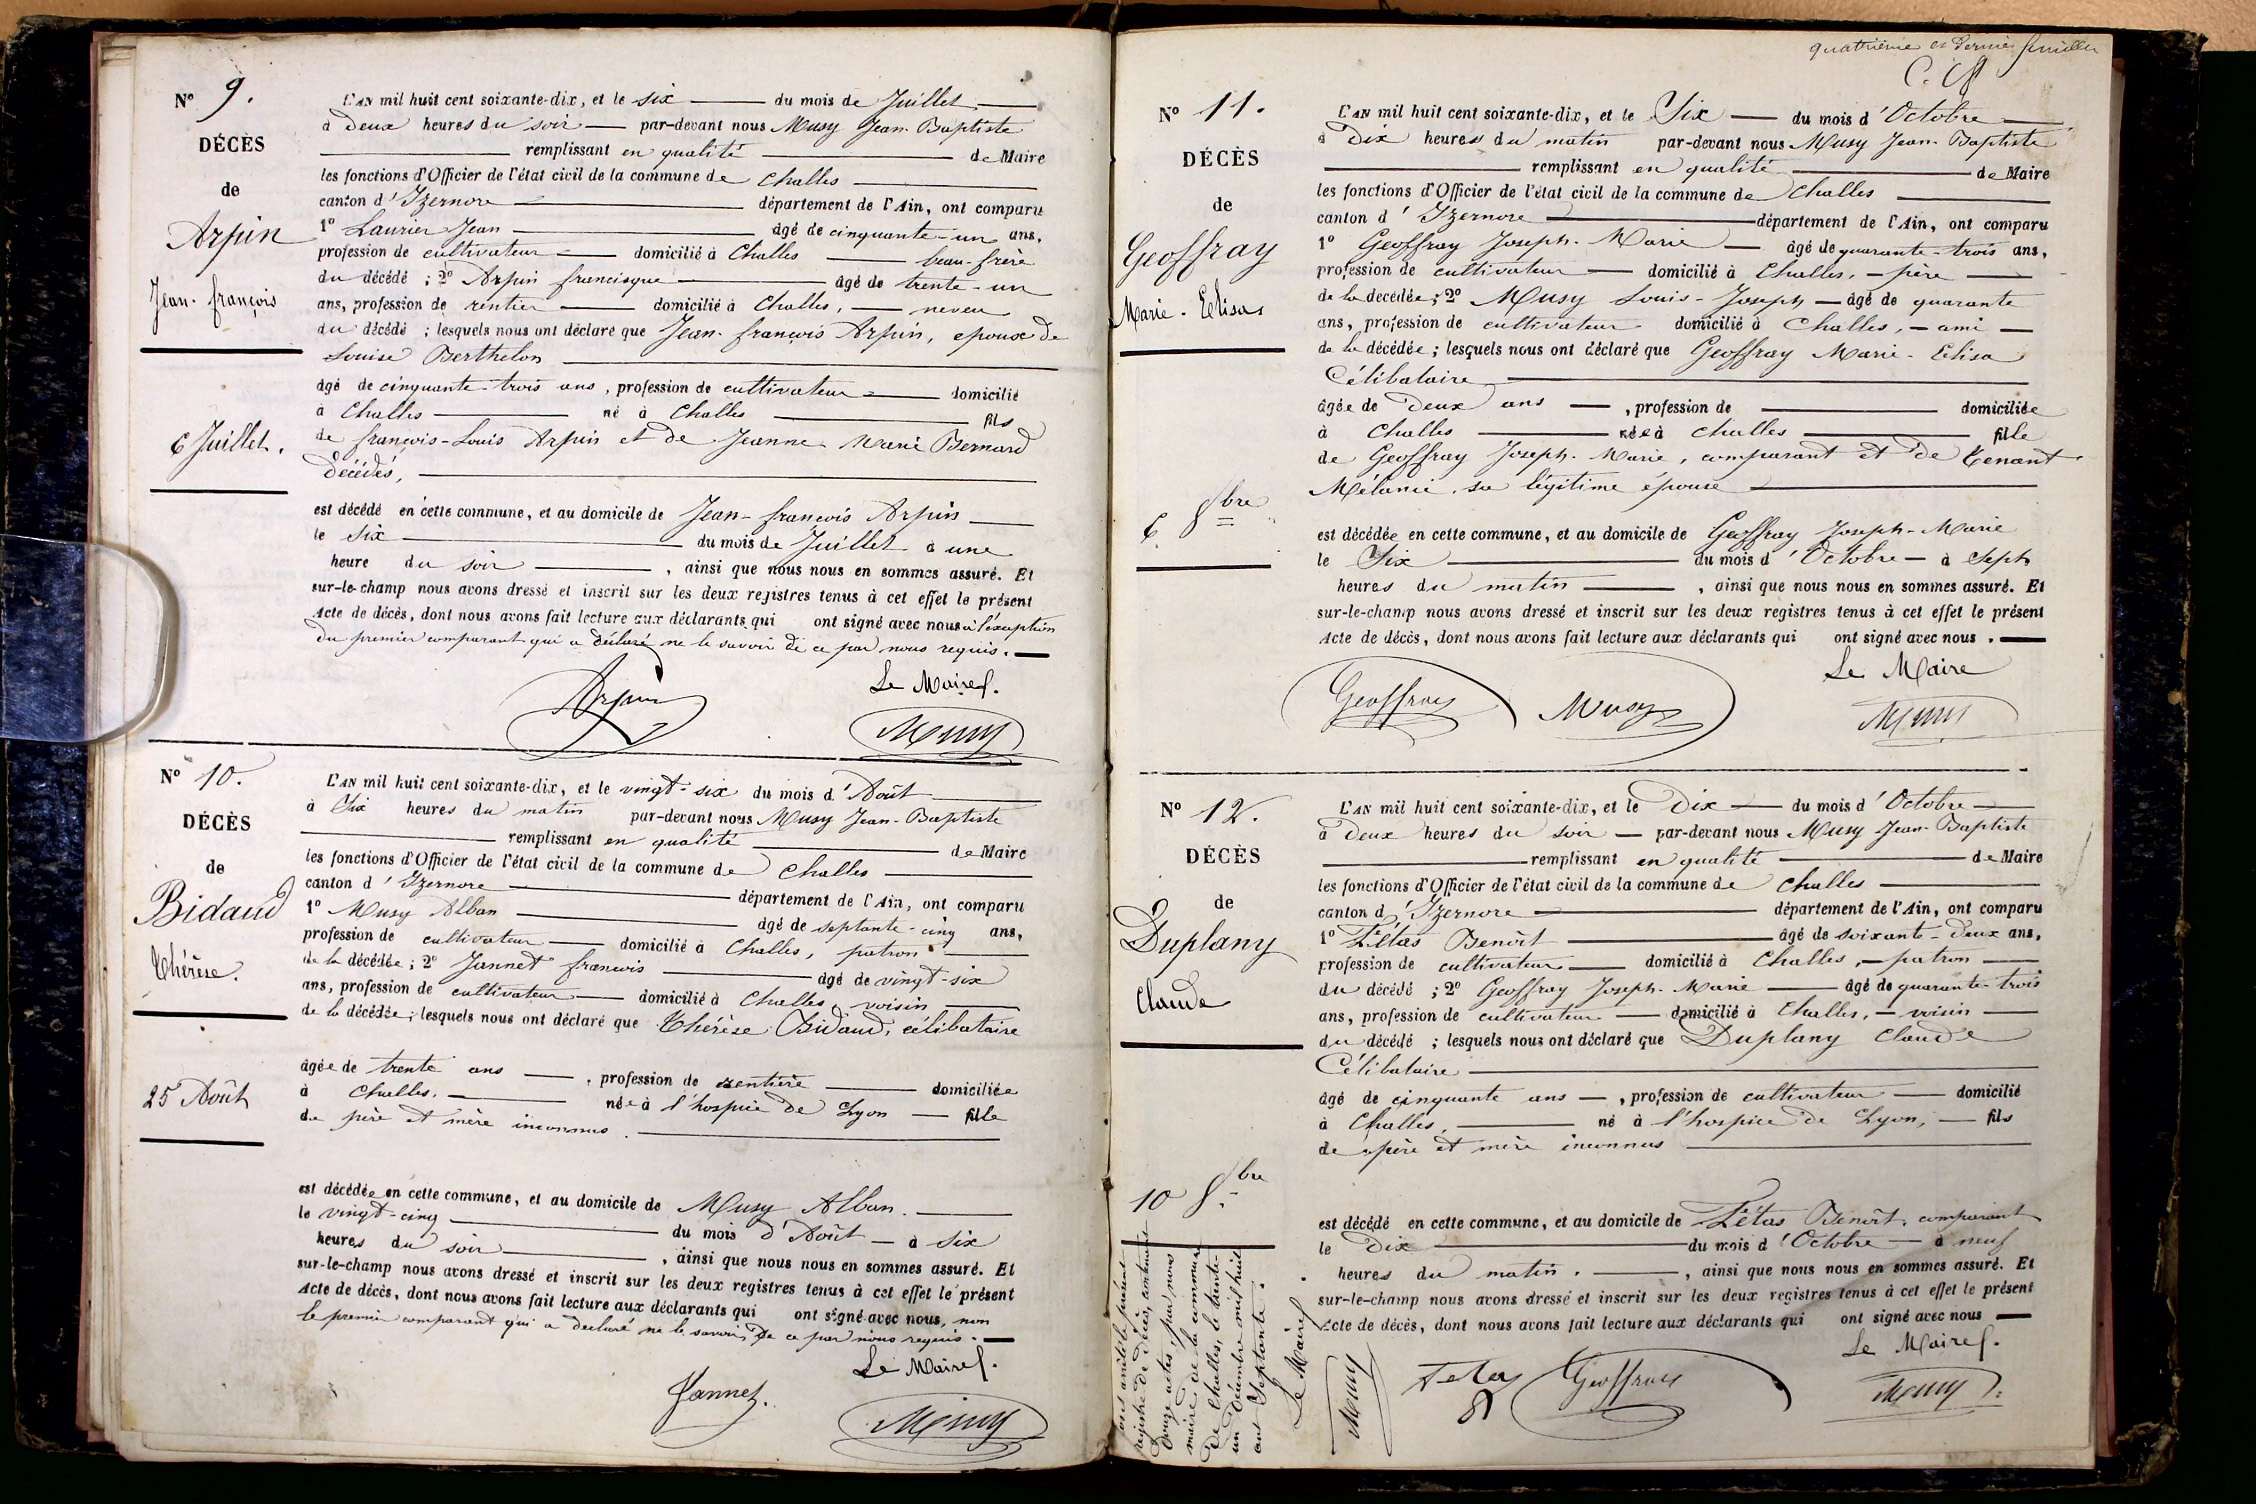 N° 9.
DÉCÈS
de
Arpin
Jean-françois
6 Juillet.
L'AN mil huit cent soixante-dix, et le six du mois de Juillet
à Deux heures du soir par-devant nous Musy Jean-Baptiste
remplissant en qualité de Maire
les fonctions d'Officier de l'état civil de la commune de Challes
canton d'Izernore département de l'Ain, ont comparu
1° Laurier Jean âgé de cinquante-un ans,
profession de cultivateur domicilié à Challes beau-frère
du décédé ; 2° Arpin francisque âgé de trente-un
ans, profession de rentier domicilié à Challes, neveu
du décédé ; lesquels nous ont déclaré que Jean-françois Arpin, epoux de
Louise Berthelon
âgé de cinquante-trois ans, profession de cultivateur domicilié
à Challes né à Challes fils
de françois-Louis Arpin et de Jeanne Marie Bernard
Décédés,
est décédé en cette commune, et au domicile de Jean-françois Arpin
le Six du mois de Juillet à une
heure du soir, ainsi que nous nous en sommes assuré. Et
sur-le-champ nous avons dressé et inscrit sur les deux registres tenus à cet effet le présent
Acte de décès, dont nous avons fait lecture aux déclarants qui ont signé avec nous à l'éxception
du premier comparant qui a déclaré ne le savoir de ce par nous requis.
Le Maire.
Arpin
Musy
N° 10.
DÉCÈS
de
Bidaud
Thérèse.
25 Août
L'AN mil huit cent soixante-dix, et le vingt-six du mois d'Août
à Six heures du matin par-devant nous Musy Jean-Baptiste
remplissant en qualité de Maire
les fonctions d'Officier de l'état civil de la commune de Challes
canton d'Izernore département de l'Ain, ont comparu
1° Musy Alban âgé de septante-cinq ans,
profession de cultivateur domicilié à Challes, patron
de la décédée ; 2° Jannet francois âgé de vingt-six
ans, profession de cultivateur domicilié à Challes, voisin
de la décédée ; lesquels nous ont déclaré que Thérèse Bidaud, célibataire
âgée de trente ans, profession de rentière domiciliée
à Challes. née à l'hospice de Lyon fille
de père et mère inconnus.
est décédée en cette commune, et au domicile de Musy Alban.
le vingt-cinq du mois d'Août à Six
heures du soir, ainsi que nous nous en sommes assuré. Et
sur-le-champ nous avons dressé et inscrit sur les deux registres tenus à cet effet le présent
Acte de décès, dont nous avons fait lecture aux déclarants qui ont signé avec nous, non
le premier comparant qui a declaré ne le savoir, de ce par nous requis.
Le Maire.
Jannet.
Musy
quatrième et dernier feuillet
N° 11.
DÉCÈS
de
Geoffray
Marie-Elisa
6 8bre
L'AN mil huit cent soixante-dix, et le Six du mois d'Octobre
à Dix heures du matin par-devant nous Musy Jean-Baptiste
remplissant en qualité de Maire
les fonctions d'Officier de l'état civil de la commune de Challes
canton d'Izernore département de l'Ain, ont comparu
1° Geoffray Joseph-Marie âgé de quarante-trois ans,
profession de cultivateur domicilié à Challes, père
de la decédée ; 2° Musy Louis-Joseph âgé de quarante
ans, profession de cultivateur domicilié à Challes, ami
de la décédée ; lesquels nous ont déclaré que Geoffray Marie-Elisa
Célibataire
âgée de Deux ans, profession de domiciliée
à Challes née à Challes fille
de Geoffray Joseph-Marie, comparant et de Tenant
Mélanie, sa légitime épouse
est décédée en cette commune, et au domicile de Geoffray Joseph-Marie
le Six du mois d'Octobre à Sept
heures du matin, ainsi que nous nous en sommes assuré. Et
sur-le-champ nous avons dressé et inscrit sur les deux registres tenus à cet effet le présent
Acte de décès, dont nous avons fait lecture aux déclarants qui ont signé avec nous.
Le Maire
Geoffray Musy Musy
N° 12.
DÉCÈS
de
Duplany
Claude
10 8bre
L'AN mil huit cent soixante-dix, et le Dix du mois d'Octobre
à Deux heures du soir par-devant nous Musy Jean-Baptiste
remplissant en qualité de Maire
les fonctions d'Officier de l'état civil de la commune de Challes
canton d'Izernore département de l'Ain, ont comparu
1° Létas Benoît âgé de soixante-deux ans,
profession de cultivateur domicilié à Challes, patron
du décédé ; 2° Geoffray Joseph-Marie âgé de quarante-trois
ans, profession de cultivateur domicilié à Challes, voisin
du décédé ; lesquels nous ont déclaré que Duplany Claude
Célibataire
âgé de cinquante ans, profession de cultivateur domicilié
à Challes, né à l'hospice de Lyon, fils
de père et mère inconnus
est décédé en cette commune, et au domicile de Létas Benoît, comparant
le Dix du mois d'Octobre à neuf
heures du matin., ainsi que nous nous en sommes assuré. Et
sur-le-champ nous avons dressé et inscrit sur les deux registres tenus à cet effet le présent
Acte de décès, dont nous avons fait lecture aux déclarants qui ont signé avec nous
Le Maire.
Geoffray
Musy
arrêté le présent
registre de décès, contenant
Douze actes, par nous
maire de la commune
de Challes, le trente-
un Décembre mil huit
cent Septante.
Le Maire
Musy